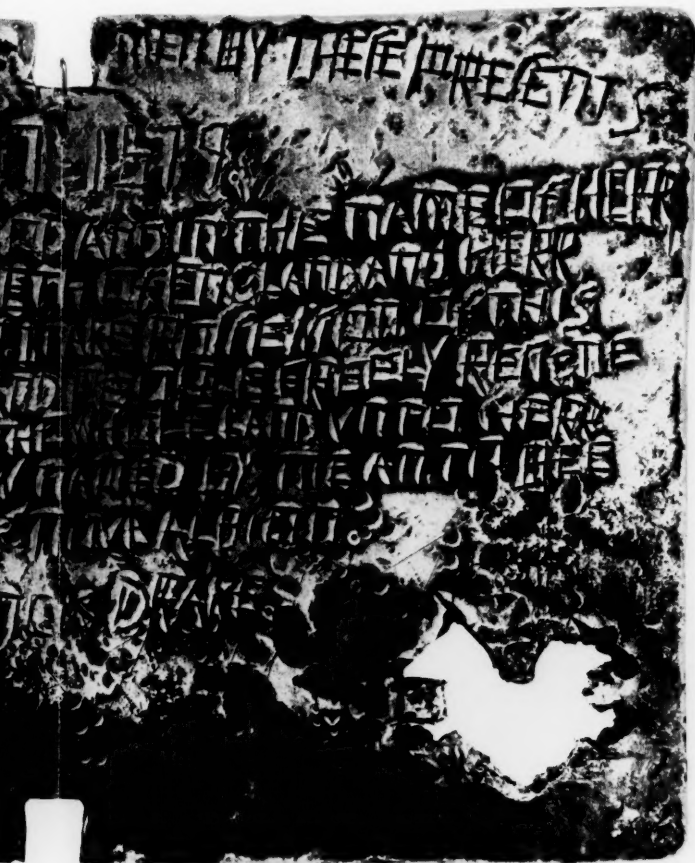 MEN BY THESE PRESENTS
1579
AND IN THE NAME OF HERR
OF ENGLAND AND HERR
OF THIS
FREELY RESIGNE
THE WHOLE LAND VNTO HERR
NAMED BY ME AN TO BEE
ALBION.
DRAKE